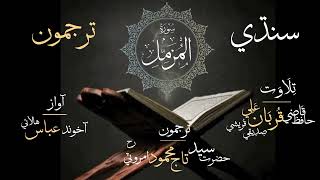 سنڌي
ترجمون
سورة
المزمل
تلاوت
حافظ قاضي قربان علي
صديقي قريشي
ترجمون
حضرت سيد تاج محمود امروٽي رح
آواز
آخوند عباس هالائي